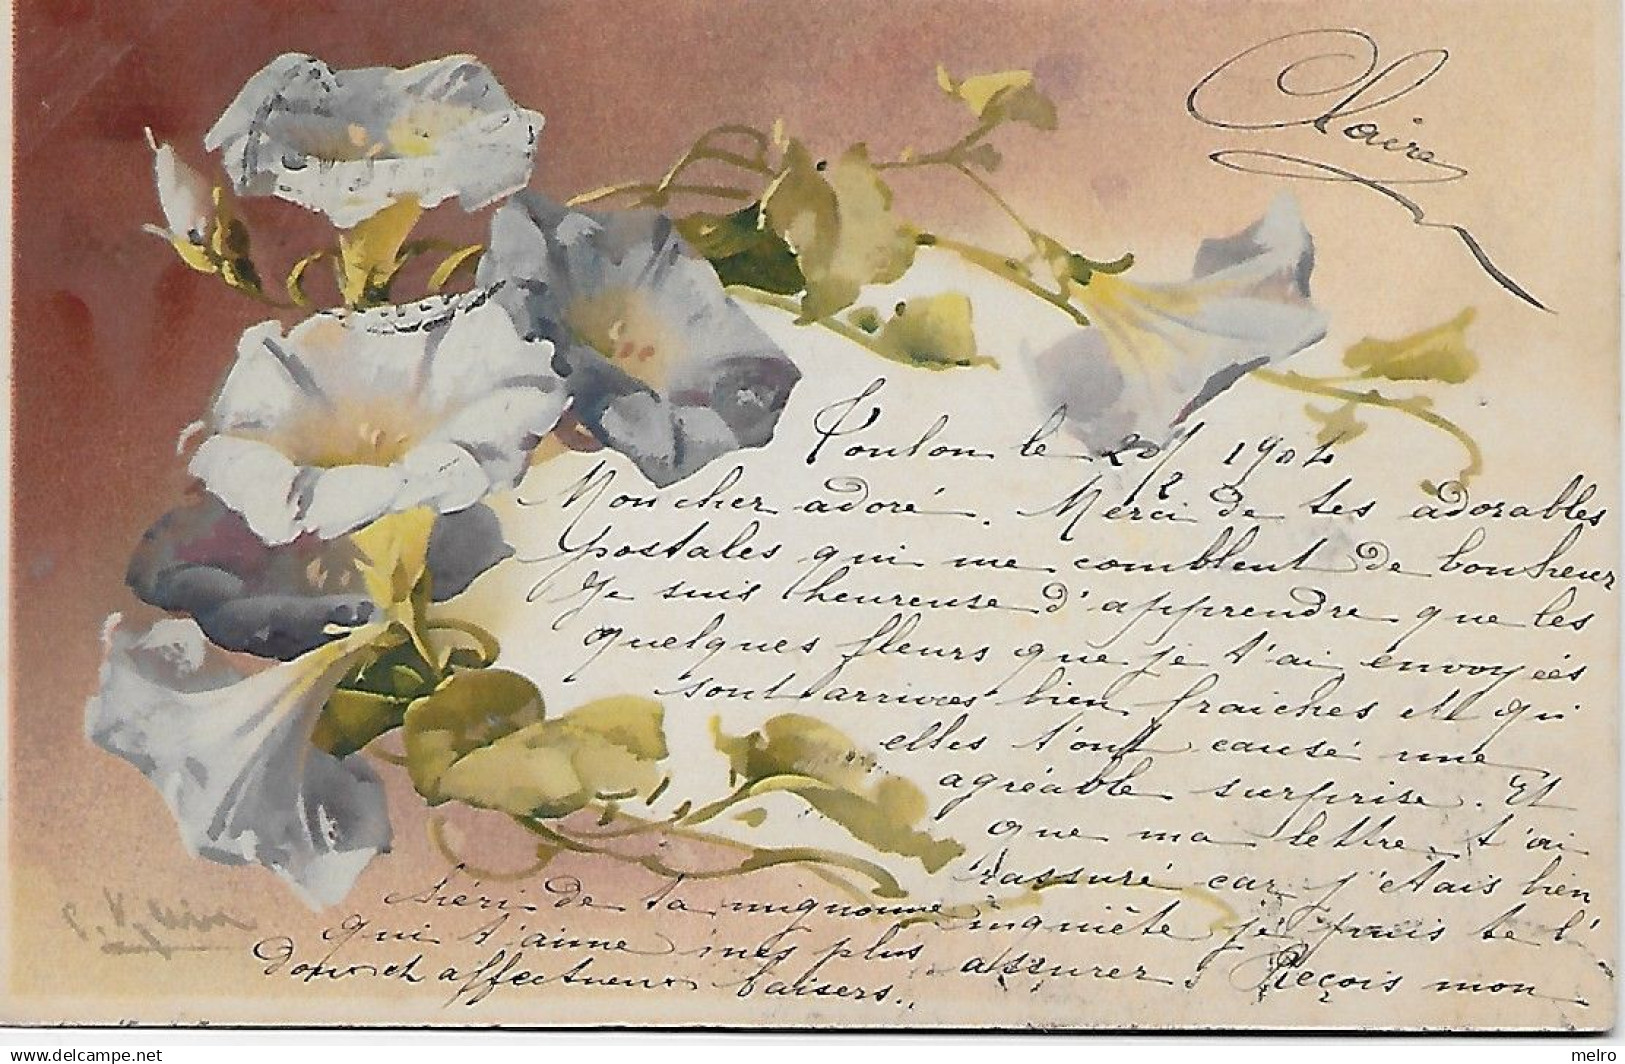 Claire
Toulon le 20/2 1904
Mon cher adoré. Merci de tes adorables
postales qui me comblent de bonheur
Je suis heureuse d'apprendre que les
quelques fleurs que je t'ai envoyées
sont arrivées bien fraiches et qui
elles t'ont causé une
agréable surprise. Et
que ma lettre t'ai
rassuré car j'étais bien
inquiète je puis te l'
assurer. Reçois mon
chéri de ta mignonne
qui t'aime mes plus
doux et affectueux baisers..
C. Klein
melro
delcampe.net